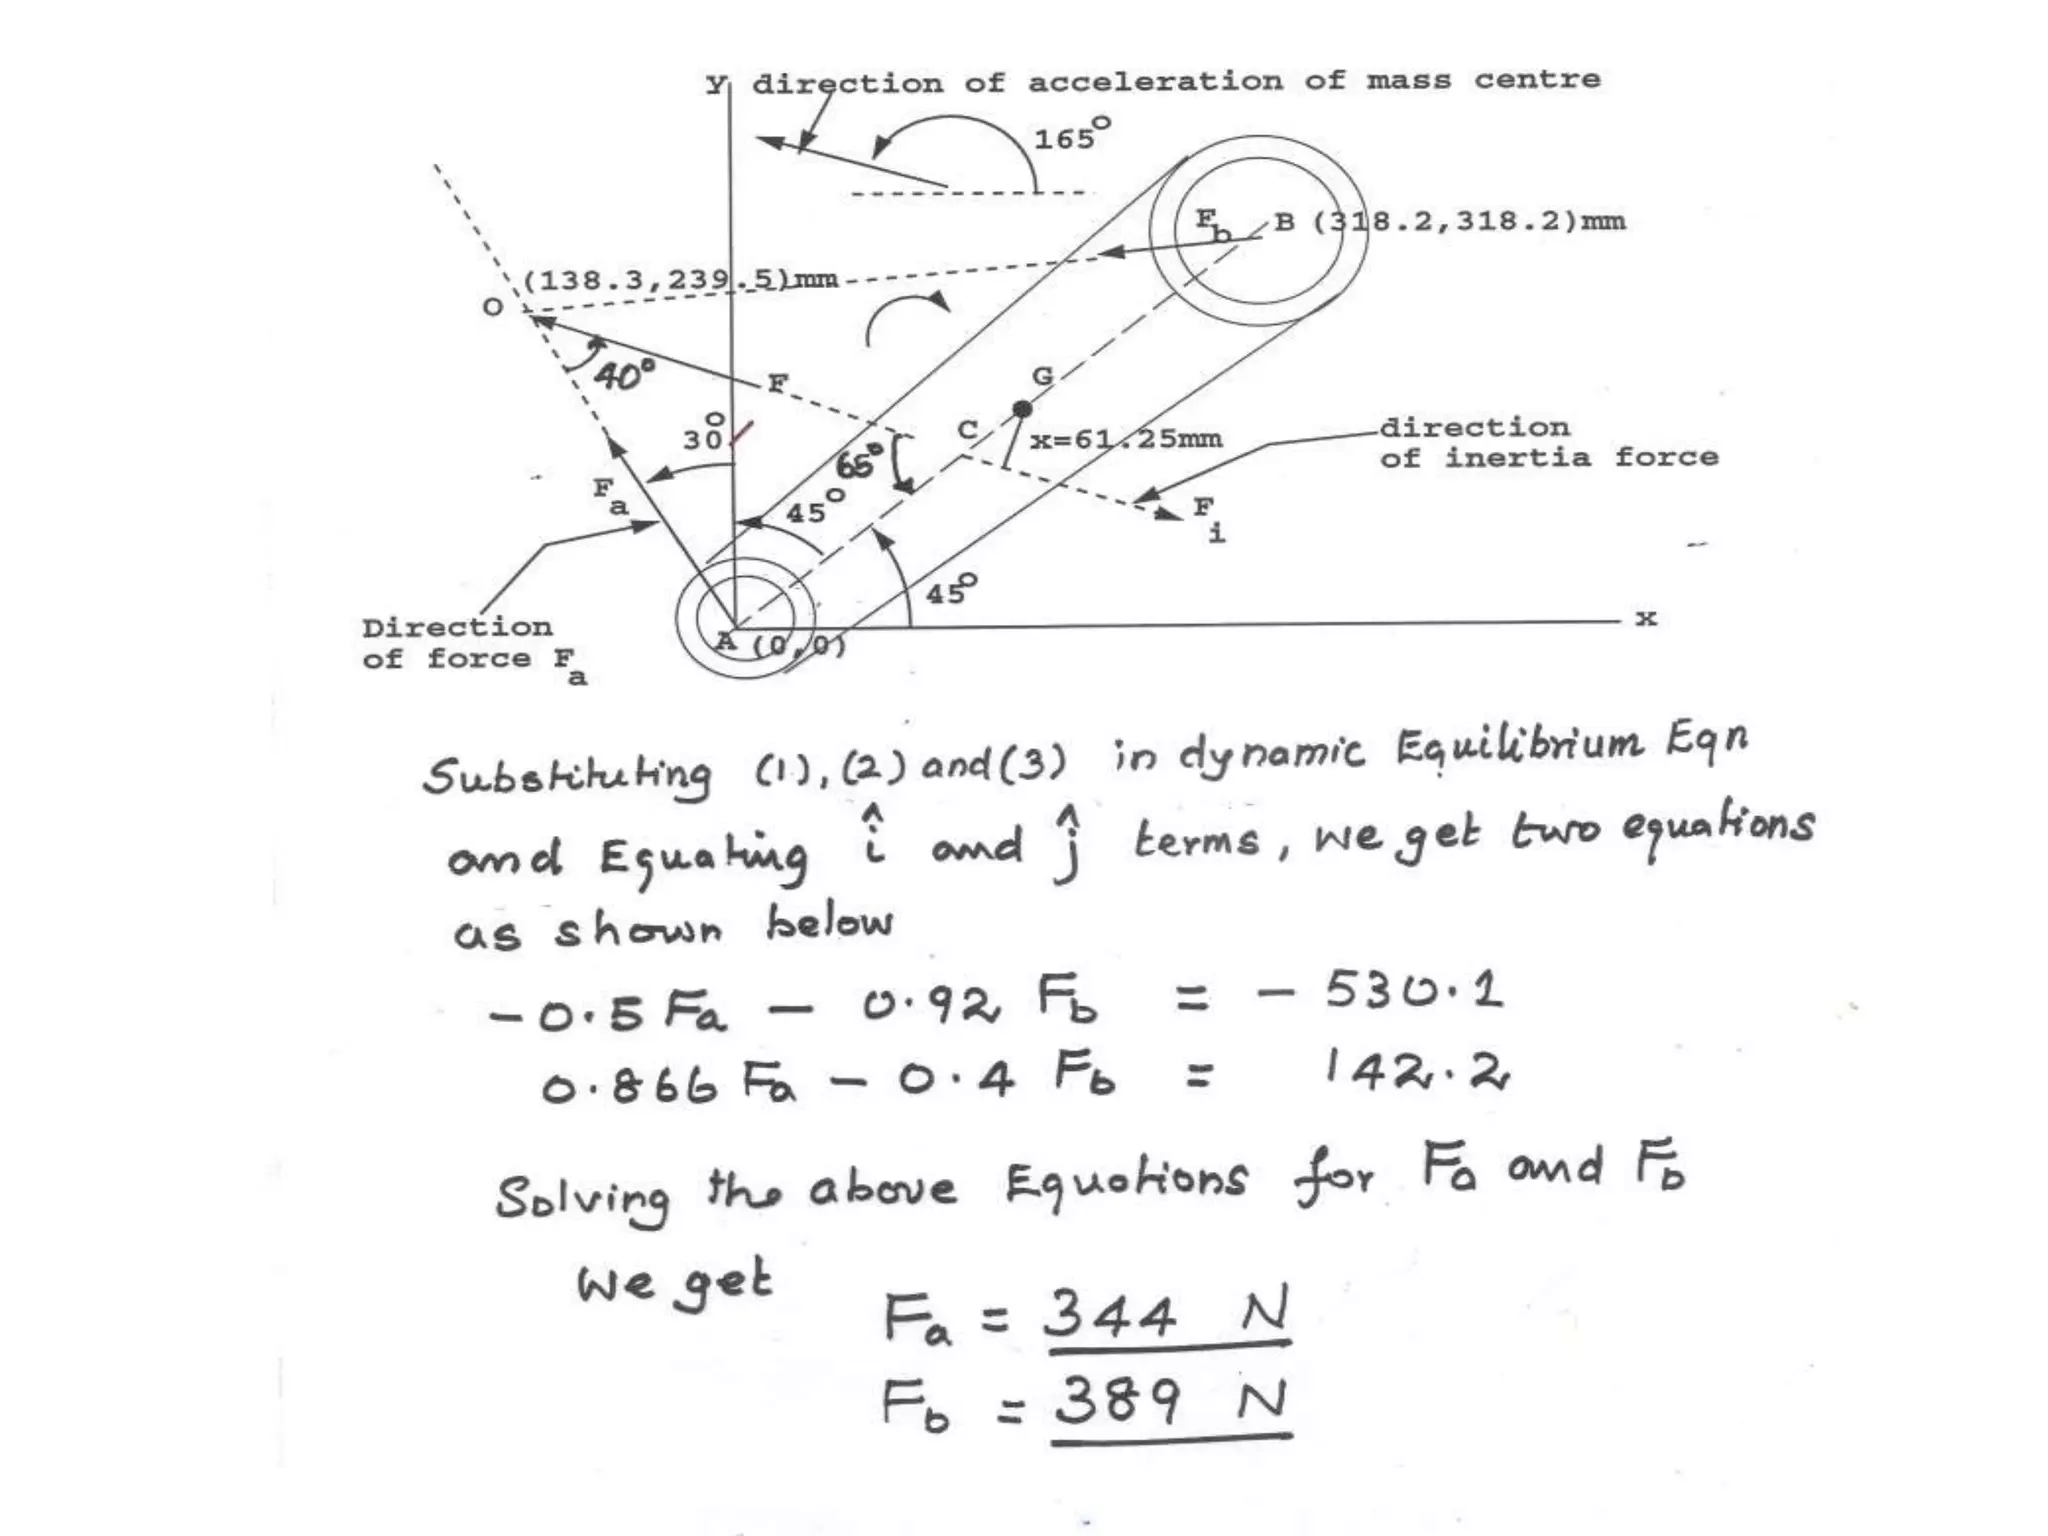 Y direction of acceleration of mass centre
165°
F_b B (318.2,318.2)mm
(138.3,239.5)mm
O
40°
F
G
30°
C
x=61.25mm
direction
of inertia force
65°
F_a
45°
F_i
45°
Direction
of force F_a
A (0,0)
x
Substituting (1), (2) and (3) in dynamic Equilibrium Eqn
and Equating î and ĵ terms, we get two equations
as shown below
-0.5 Fa - 0.92 Fb = - 530.1
0.866 Fa - 0.4 Fb = 142.2
Solving the above Equations for Fa and Fb
we get
Fa = 344 N
Fb = 389 N